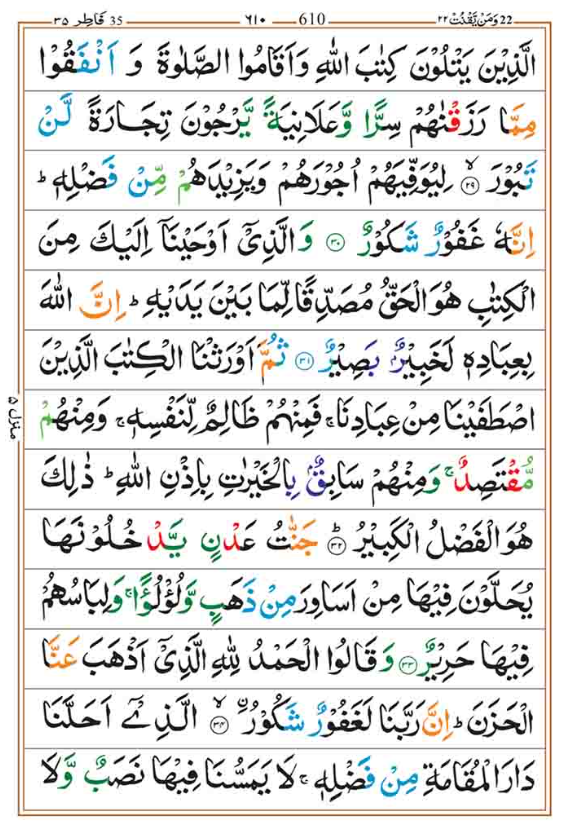 22 وَمَنْ يَّقْنُتْ ٢٢ 610 ٦١٠ 35 فَاطِر ٣٥
الَّذِيْنَ يَتْلُوْنَ كِتٰبَ اللّٰهِ وَاَقَامُوا الصَّلٰوةَ وَ اَنْفَقُوْا
مِمَّا رَزَقْنٰهُمْ سِرًّا وَّعَلَانِيَةً يَّرْجُوْنَ تِجَارَةً لَّنْ
تَبُوْرَ ۙ‏﴿۲۹﴾ لِيُوَفِّيَهُمْ اُجُوْرَهُمْ وَيَزِيْدَهُمْ مِّنْ فَضْلِهٖ ؕ
اِنَّهٗ غَفُوْرٌ شَكُوْرٌ ﴿۳۰﴾ وَ الَّذِىْۤ اَوْحَيْنَاۤ اِلَيْكَ مِنَ
الْكِتٰبِ هُوَ الْحَقُّ مُصَدِّقًا لِّمَا بَيْنَ يَدَيْهِ ؕ اِنَّ اللّٰهَ
بِعِبَادِهٖ لَخَبِيْرٌۢ بَصِيْرٌ ﴿۳۱﴾ ثُمَّ اَوْرَثْنَا الْكِتٰبَ الَّذِيْنَ
اصْطَفَيْنَا مِنْ عِبَادِنَا ۚ فَمِنْهُمْ ظَالِمٌ لِّنَفْسِهٖ ۚ وَمِنْهُمْ
مُّقْتَصِدٌ ۚ وَمِنْهُمْ سَابِقٌۢ بِالْخَيْرٰتِ بِاِذْنِ اللّٰهِ ؕ ذٰلِكَ
هُوَ الْفَضْلُ الْكَبِيْرُ ؕ ﴿۳۲﴾ جَنّٰتُ عَدْنٍ يَّدْخُلُوْنَهَا
يُحَلَّوْنَ فِيْهَا مِنْ اَسَاوِرَ مِنْ ذَهَبٍ وَّلُؤْلُؤًا ۚ وَلِبَاسُهُمْ
فِيْهَا حَرِيْرٌ ﴿۳۳﴾ وَقَالُوا الْحَمْدُ لِلّٰهِ الَّذِىْۤ اَذْهَبَ عَنَّا
الْحَزَنَ ؕ اِنَّ رَبَّنَا لَغَفُوْرٌ شَكُوْرُ ۙ ﴿۳۴﴾ اۨلَّذِىْۤ اَحَلَّنَا
دَارَ الْمُقَامَةِ مِنْ فَضْلِهٖ ۚ لَا يَمَسُّنَا فِيْهَا نَصَبٌ وَّلَا
منزل ۵